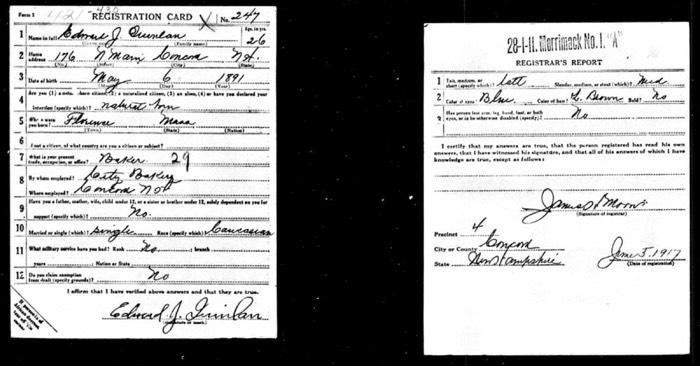 Form 1 REGISTRATION CARD No. 247
1 Name in full Edward J. Quinlan Age, in yrs. 26
(Family name)
2 Home address 176 N Main Concord N.H.
(No.) (Street) (City) (State)
3 Date of birth May 6 1891
(Month) (Day) (Year)
4 Are you (1) a natural-born citizen, (2) a naturalized citizen, (3) an alien, (4) or have you declared your
intention (specify which)? natural born
5 Where were you born? Florence Mass
(Town) (State) (Nation)
6 If not a citizen, of what country are you a citizen or subject?
7 What is your present trade, occupation, or office? Baker 29
8 By whom employed? City Bakery
Where employed? Concord N.H.
9 Have you a father, mother, wife, child under 12, or a sister or brother under 12, solely dependent on you for
support (specify which)? No.
10 Married or single (which)? Single Race (specify which)? Caucasian
11 What military service have you had? Rank No ; branch
years ; Nation or State
12 Do you claim exemption from draft (specify grounds)? No
I affirm that I have verified above answers and that they are true.
Edward J. Quinlan
(Signature or mark)
28-1-11. Merrimack No. 1. "A"
REGISTRAR'S REPORT
1 Tall, medium, or short (specify which)? Tall Slender, medium, or stout (which)? Med
2 Color of eyes? Blue Color of hair? L. Brown Bald? No
3 Has person lost arm, leg, hand, foot, or both
eyes, or is he otherwise disabled (specify)? No
I certify that my answers are true, that the person registered has read his own
answers, that I have witnessed his signature, and that all of his answers of which I have
knowledge are true, except as follows:
(Signature of registrar)
Precinct 4
City or County Concord
State New Hampshire June 5, 1917
(Date of registration)